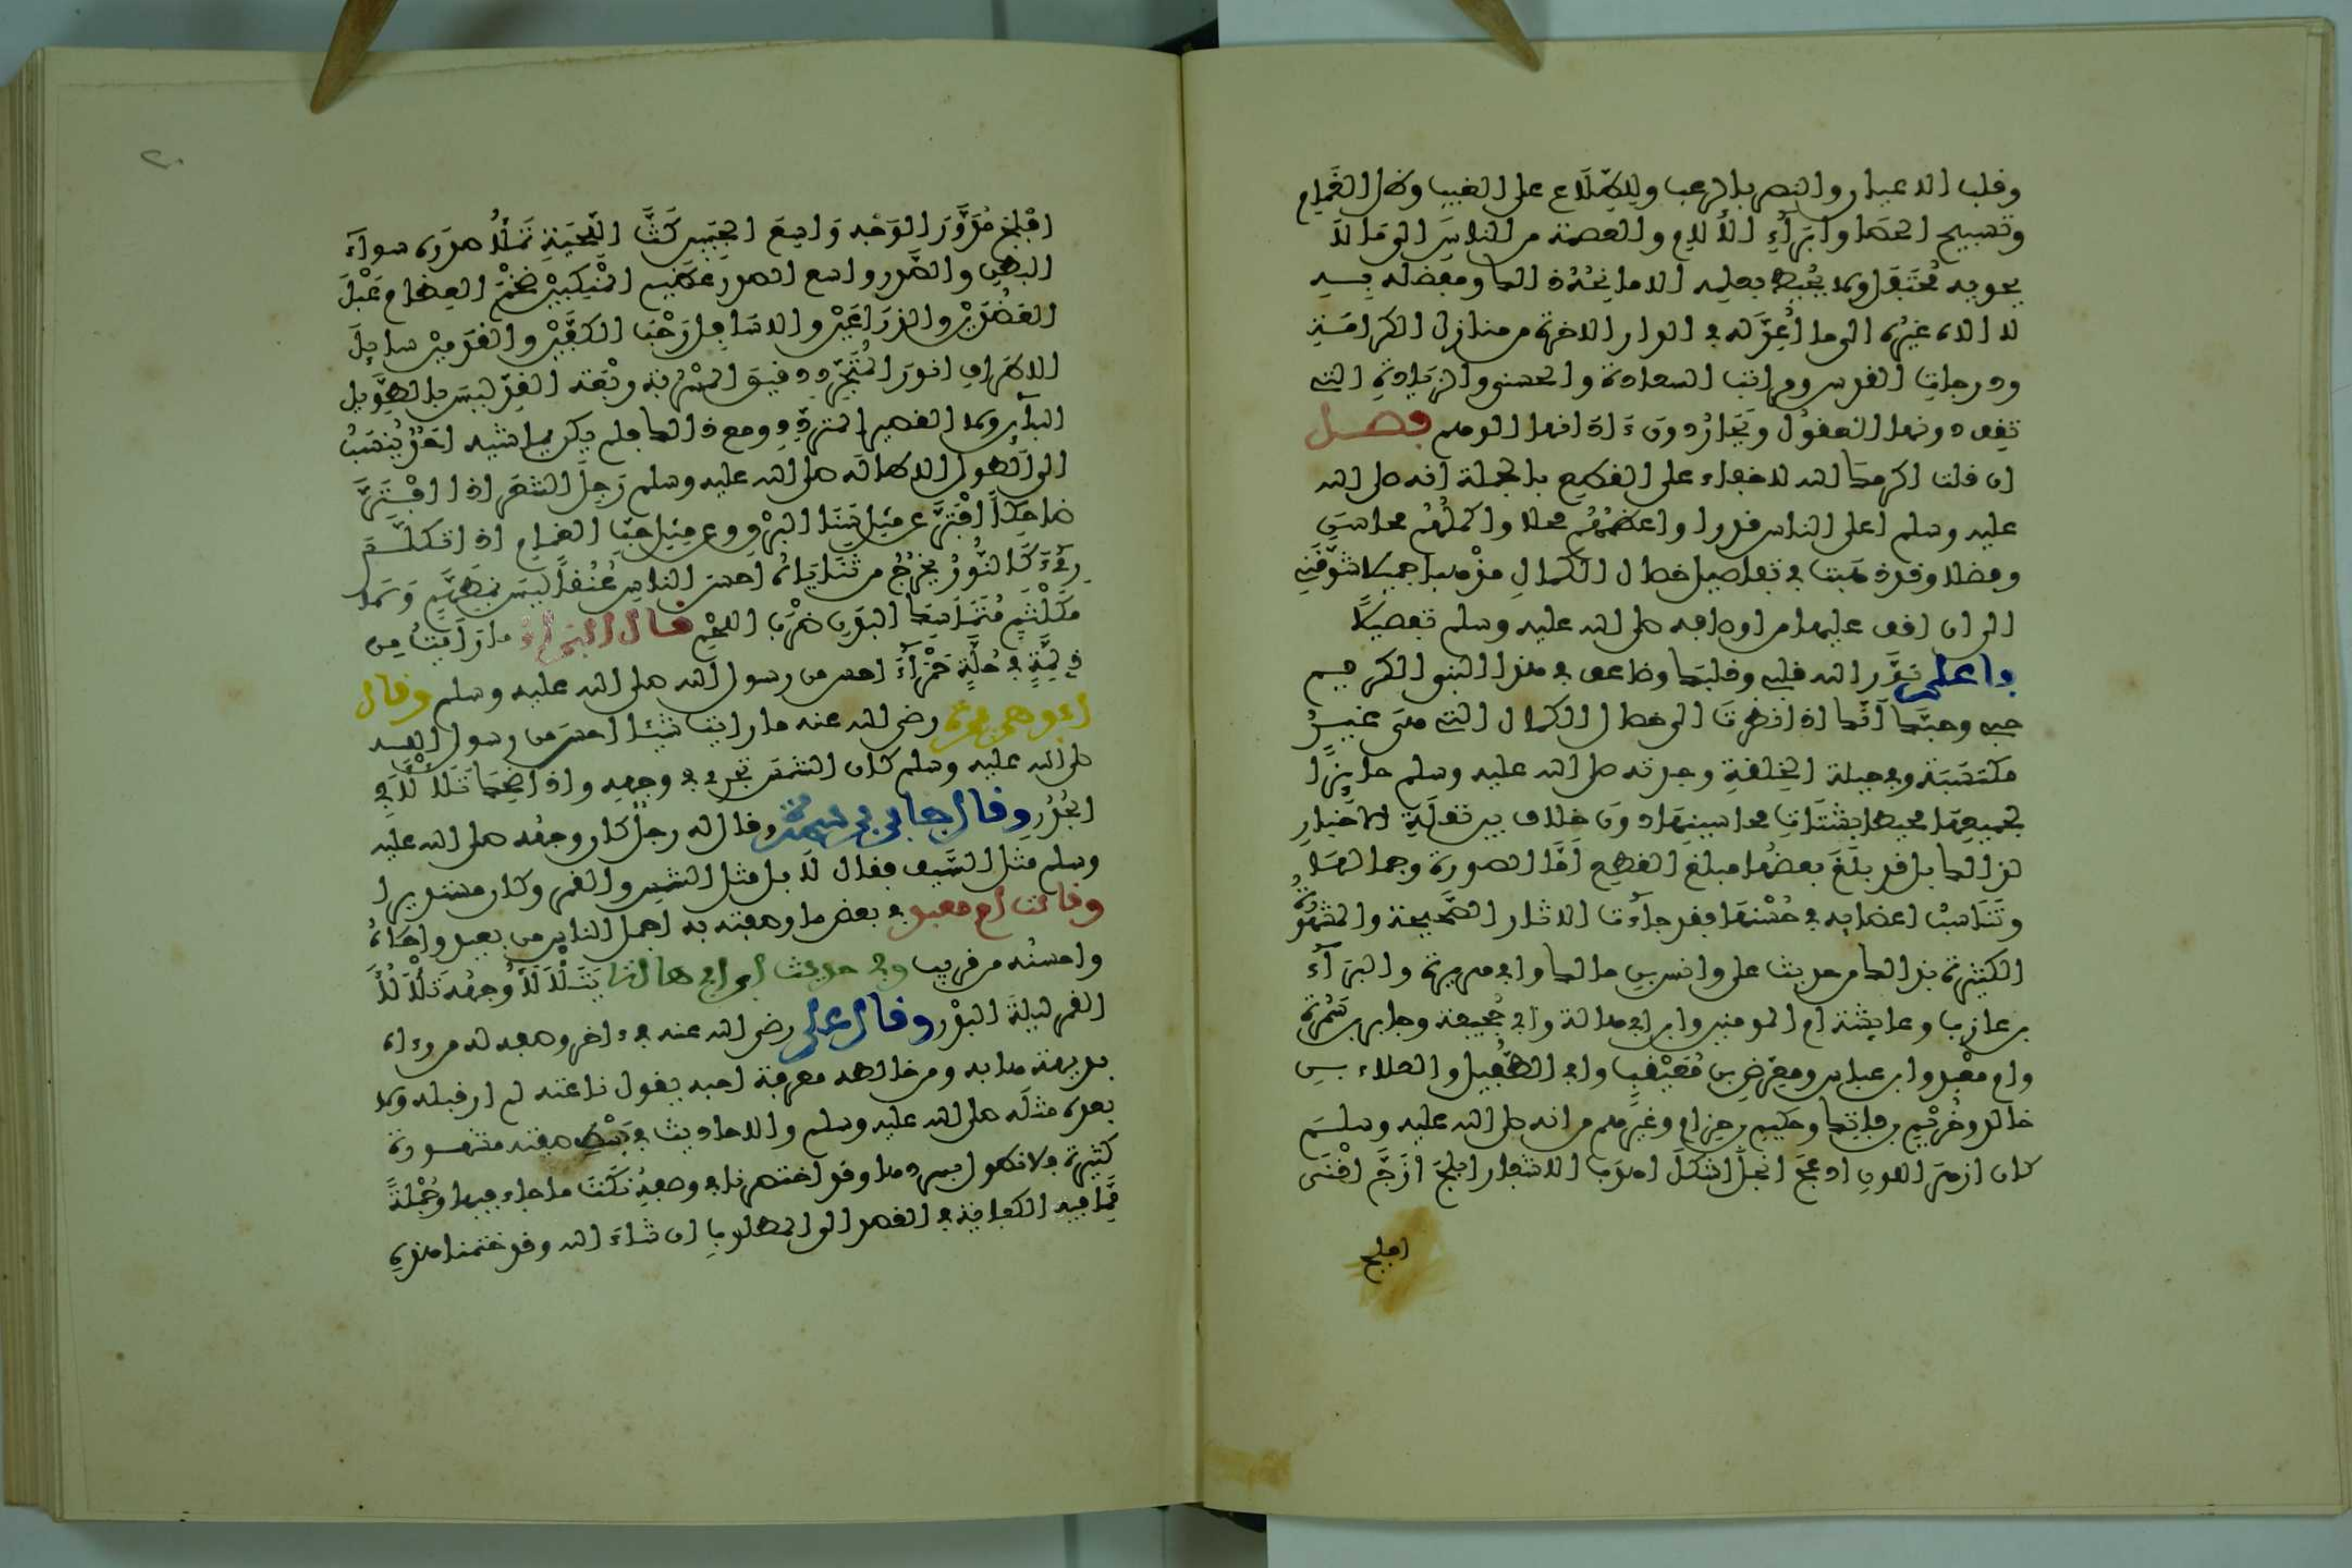 وقلب الاعيان والنصر بالرعب والاطلاع على الغيب وظل الغمام
وتسبيح الحصا وابراء الالام والعصمة من الناس الى ما لا
يحويه محتفل ولا يحيط بعلمه الا مانحه ذلك ومفضله به
لا اله غيره الى ما اعد له في الدار الاخرة من منازل الكرامة
ودرجات القدس ومراتب السعادة والحسنى والزيادة التي
تقف دونها العقول ويحار دون ادانيها الوهم فصل
ان قلت اكرمك الله لا خفاء على القطع بالجملة انه صلى الله
عليه وسلم اعلى الناس قدرا واعظمهم محلا واكملهم محاسن
وفضلا وقد ذهبت في تفاصيل خصال الكمال مذهبا جميلا شوقني
الى ان اقف عليها من اوصافه صلى الله عليه وسلم تفصيلا
فاعلم نور الله قلبي وقلبك وضاعف في هذا النبي الكريم
حبي وحبك انك اذا نظرت الى خصال الكمال التي هي غير
مكتسبة وفي جبلة الخلقة وجدته صلى الله عليه وسلم حايزا
لجميعها محيطا بشتات محاسنها دون خلاف بين نقلة الاخبار
لذلك بل قد بلغ بعضها مبلغ القطع اما الصورة وجمالها
وتناسب اعضايه في حسنها فقد جاءت الاثار الصحيحة والمشهورة
الكثيرة بذلك من حديث علي وانس بن مالك وابي هريرة والبراء
بن عازب وعايشة ام المومنين وابن ابي هالة وابي جحيفة وجابر بن سمرة
وام معبد وابن عباس ومعرض بن معيقيب وابي الطفيل والعداء بن
خالد وخريم بن فاتك وحكيم بن حزام وغيرهم من انه صلى الله عليه وسلم
كان ازهر اللون ادعج انجل اشكل اهدب الاشفار ابلج ازج اقنى
افلج
٢٠
افلج مدور الوجه واسع الجبين كث اللحية تملا صدره سواء
البطن والصدر واسع الصدر عظيم المنكبين ضخم العظام عبل
العضدين والذراعين والاسافل رحب الكفين والقدمين سايل
الاطراف انور المتجرد دقيق المسربة ربعة القد ليس بالطويل
الباين ولا القصير المتردد ومع ذلك فلم يكن يماشيه احد ينسب
الى الطول الا طاله صلى الله عليه وسلم رجل الشعر اذا افتر
ضاحكا افتر عن مثل سنا البرق وعن مثل حب الغمام اذا تكلم
رءي كالنور يخرج من ثناياه احسن الناس عنقا ليس بمطهم ولا
مكلثم متماسك البدن ضرب اللحم قال البراء ما رايت من
ذي لمة في حلة حمراء احسن من رسول الله صلى الله عليه وسلم وقال
ابو هريرة رضي الله عنه ما رايت شيئا احسن من رسول الله
صلى الله عليه وسلم كان الشمس تجري في وجهه واذا ضحك تلالا في
الجدر وقال جابر بن سمرة وقال له رجل كان وجهه صلى الله عليه
وسلم مثل السيف فقال لا بل مثل الشمس والقمر وكان مستديرا
وقالت ام معبد في بعض ما وصفته به اجمل الناس من بعيد واحلاه
واحسنه من قريب وفي حديث ابن ابي هالة يتلالا وجهه تلالا
القمر ليلة البدر وقال علي رضي الله عنه في اخر وصفه له من رءاه
بديهة هابه ومن خالطه معرفة احبه يقول ناعته لم ار قبله ولا
بعده مثله صلى الله عليه وسلم والاحاديث في بسط صفته مشهورة
كثيرة فلا نطول بسردها وقد اختصرنا في وصفه نكت ما جاء فيها وجملة
مما فيه الكفاية في القصد الى المطلوب ان شاء الله وقد ختمنا هذه